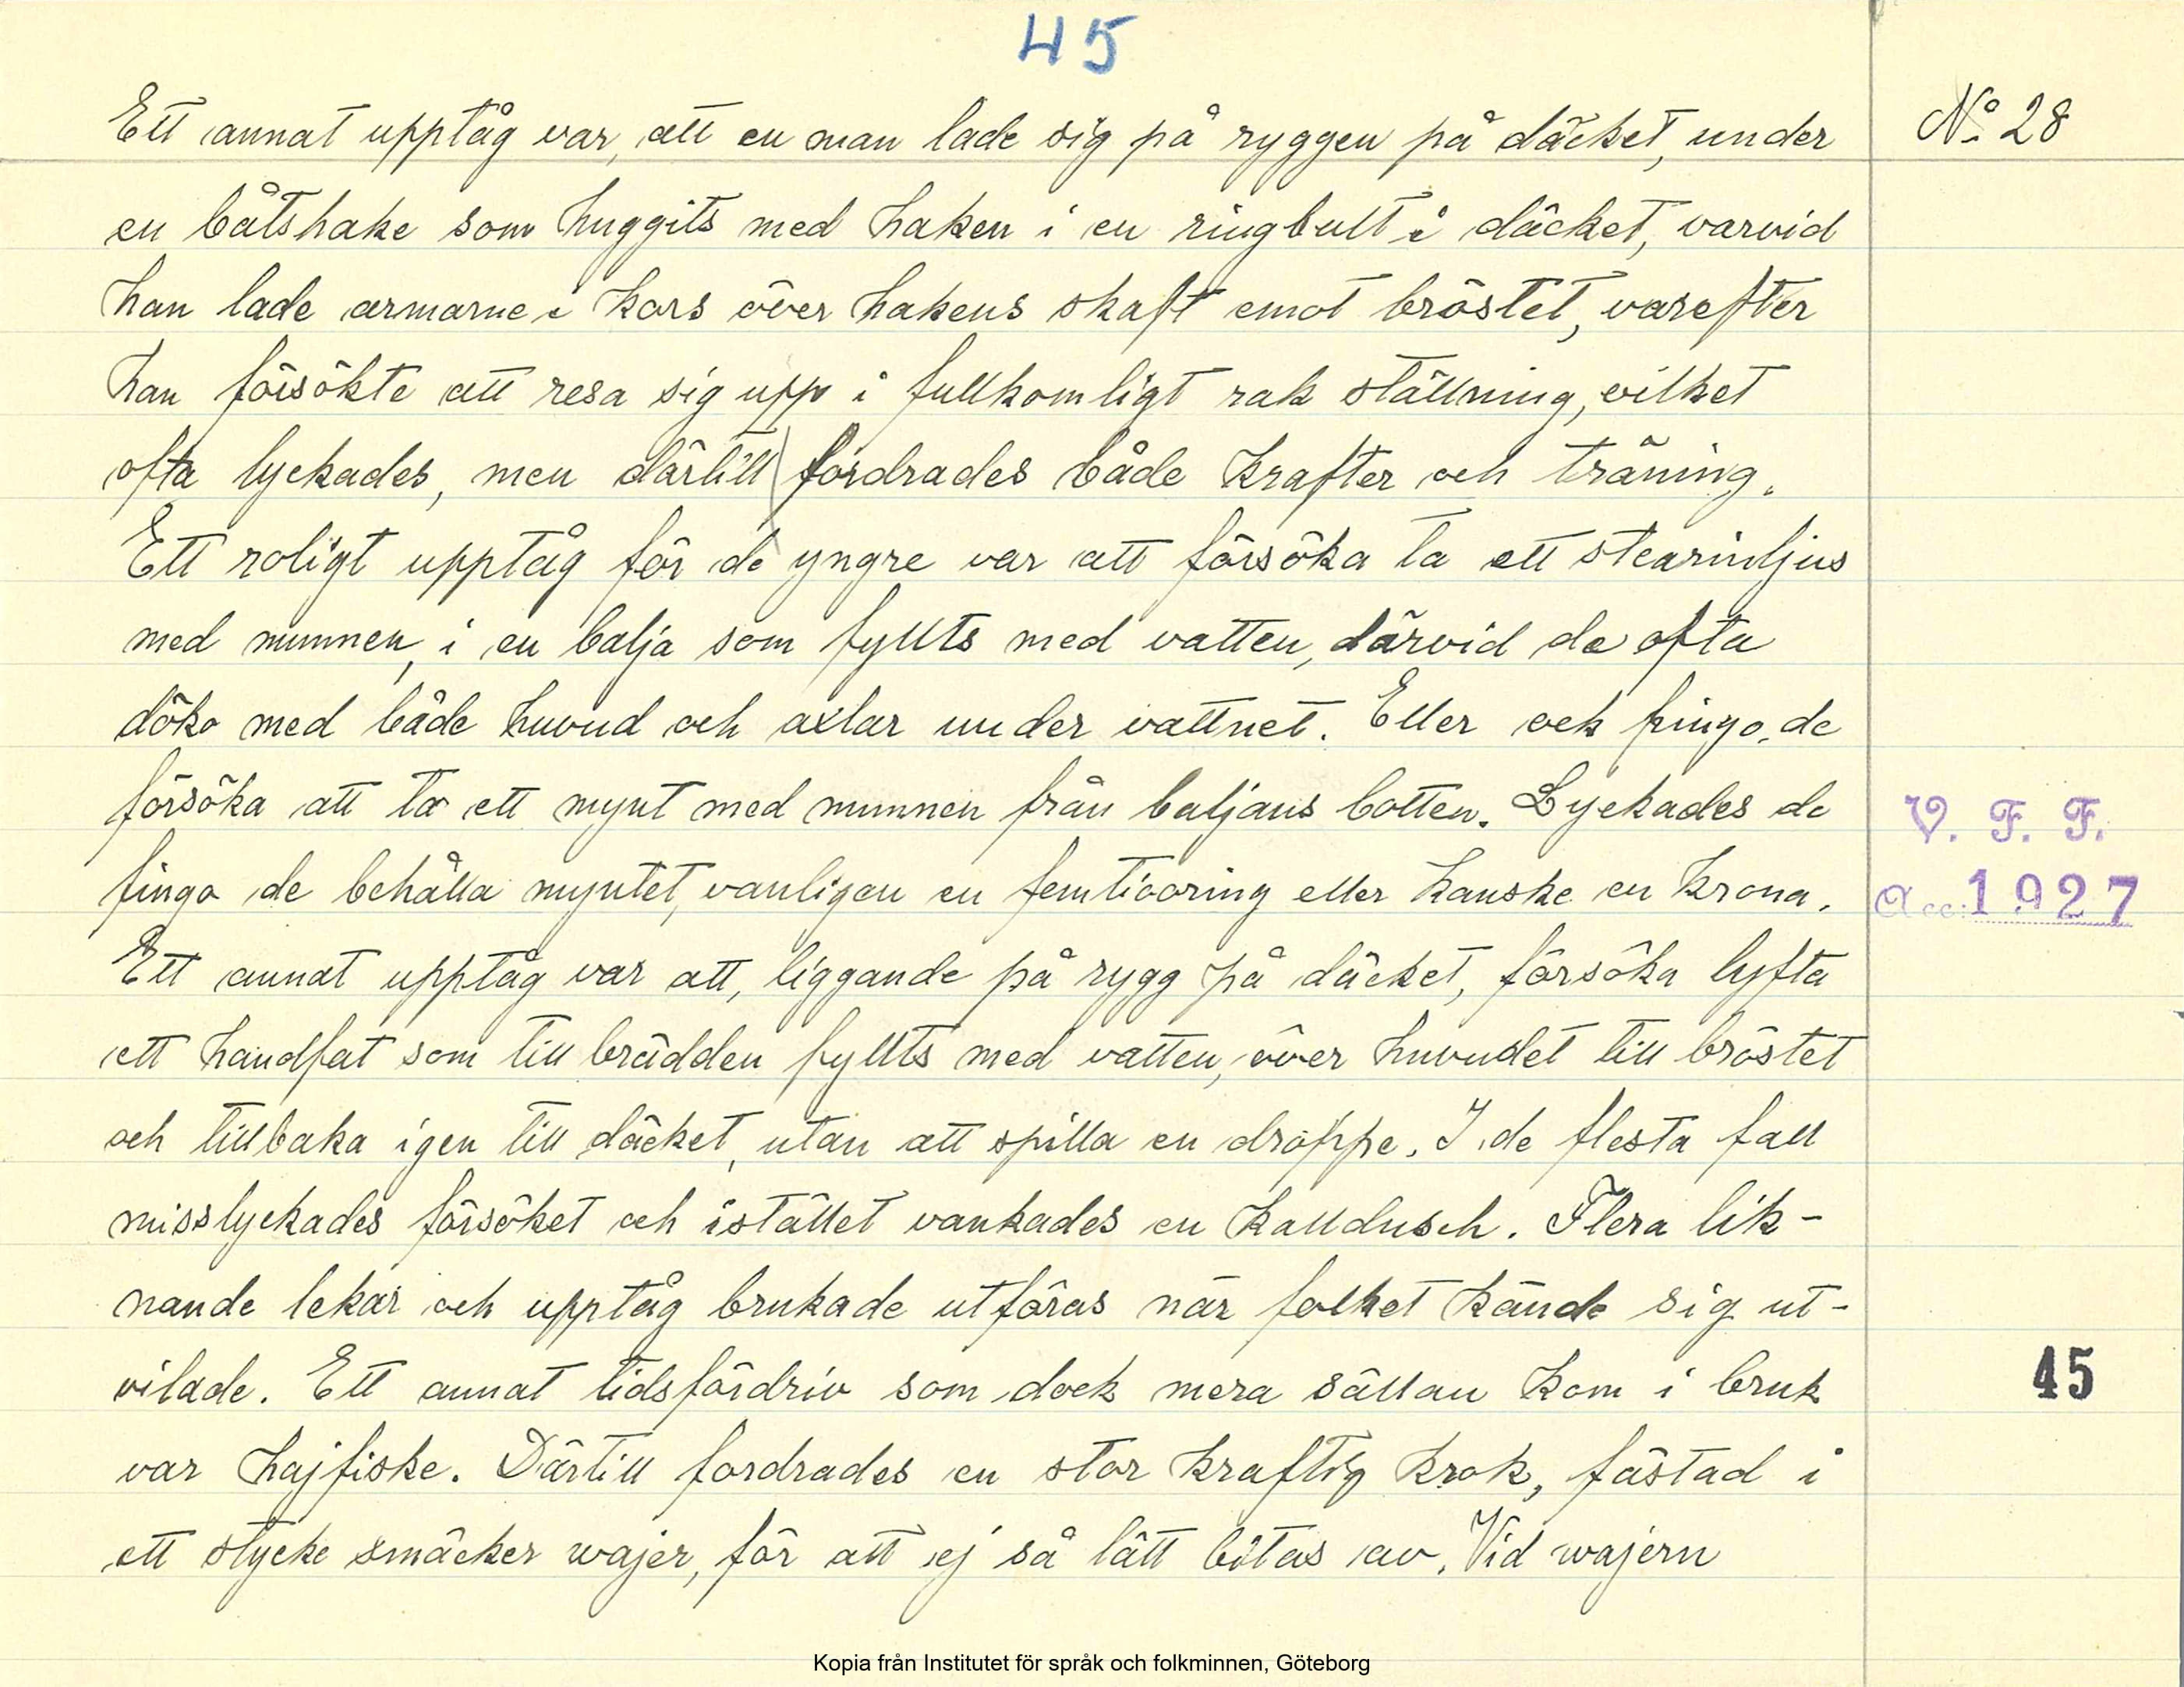 45
Ett annat upptåg var, att en man lade sig på ryggen på däcket, under
No 28
en båtshake som huggits med haken i en ringbult i däcket, varvid
han lade armarne i kors över hakens skaft emot bröstet, varefter
han försökte att resa sig upp i fullkomligt rak ställning, vilket
ofta lyckades, men därtill fordrades både krafter och träning.
Ett roligt upptåg för de yngre var att försöka ta ett stearinljus
med munnen, i en balja som fyllts med vatten, därvid de ofta
döko med både huvud och axlar under vattnet. Eller ock fingo de
försöka att ta ett mynt med munnen från baljans botten. Lyckades de
V. F. F.
fingo de behålla myntet, vanligen en femtioöring eller kanske en krona.
Acc: 1927
Ett annat upptåg var att, liggande på rygg på däcket, försöka lyfta
ett handfat som till brädden fyllts med vatten, över huvudet till bröstet
och tillbaka igen till däcket, utan att spilla en droppe. I de flesta fall
misslyckades försöket och istället vankades en kalldusch. Flera lik-
nande lekar och upptåg brukade utföras när folket kände sig ut-
vilade. Ett annat tidsfördriv som dock mera sällan kom i bruk
45
var hajfiske. Därtill fordrades en stor kraftig krok, fästad i
ett stycke smäcker wajer, för att ej så lätt bitas av. Vid wajern
Kopia från Institutet för språk och folkminnen, Göteborg